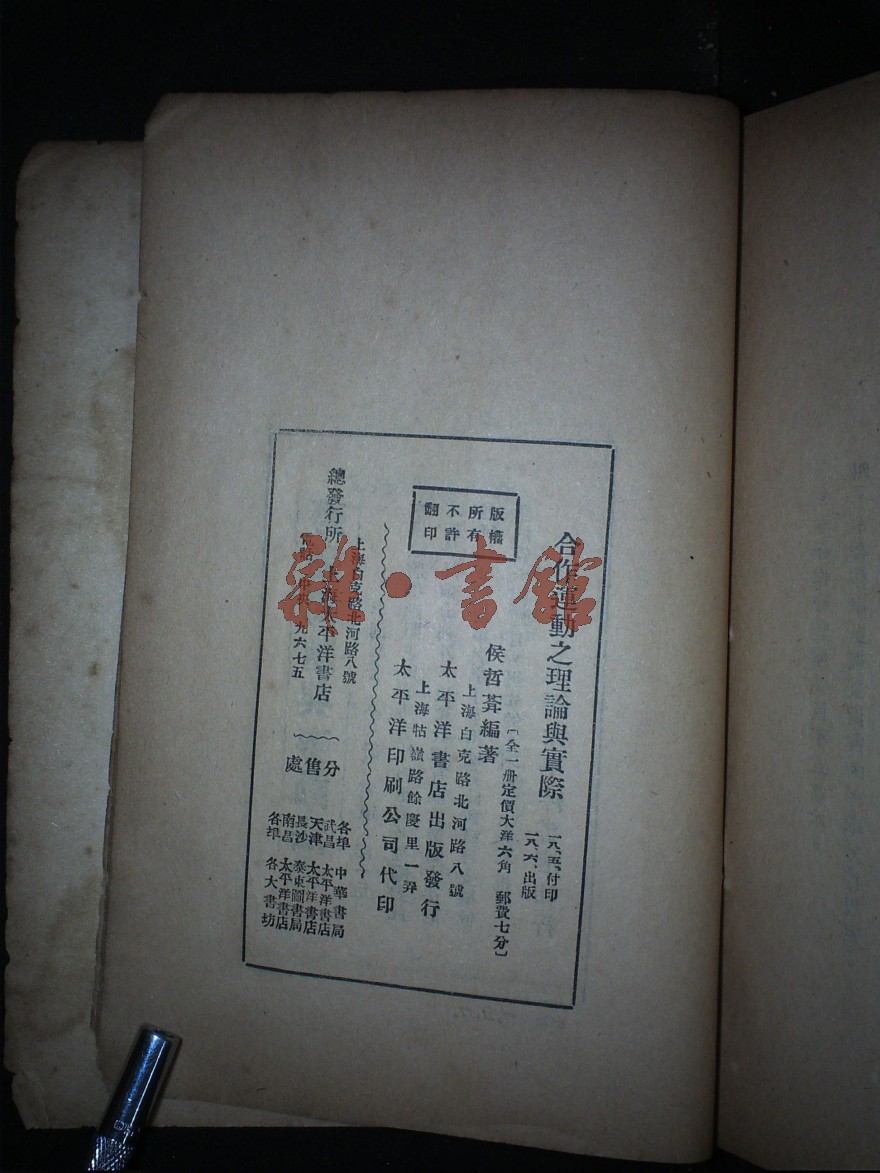 合作運動之理論與實際
一八、五、付印
一八、六、出版
〔全一册定價大洋六角 郵費七分〕
侯哲葊編著
上海白克路北河路八號
太平洋書店出版發行
上海牯嶺路餘慶里一弄
太平洋印刷公司代印
版權
所有
不許
翻印
上海白克路北河路八號
總發行所 上海太平洋書店
九六七五
分售處
各埠 中華書局
武昌 太平洋書店
天津 太平洋書店
長沙 泰東圖書局
南昌 太平洋書店
各埠 各大書坊
雜·書館